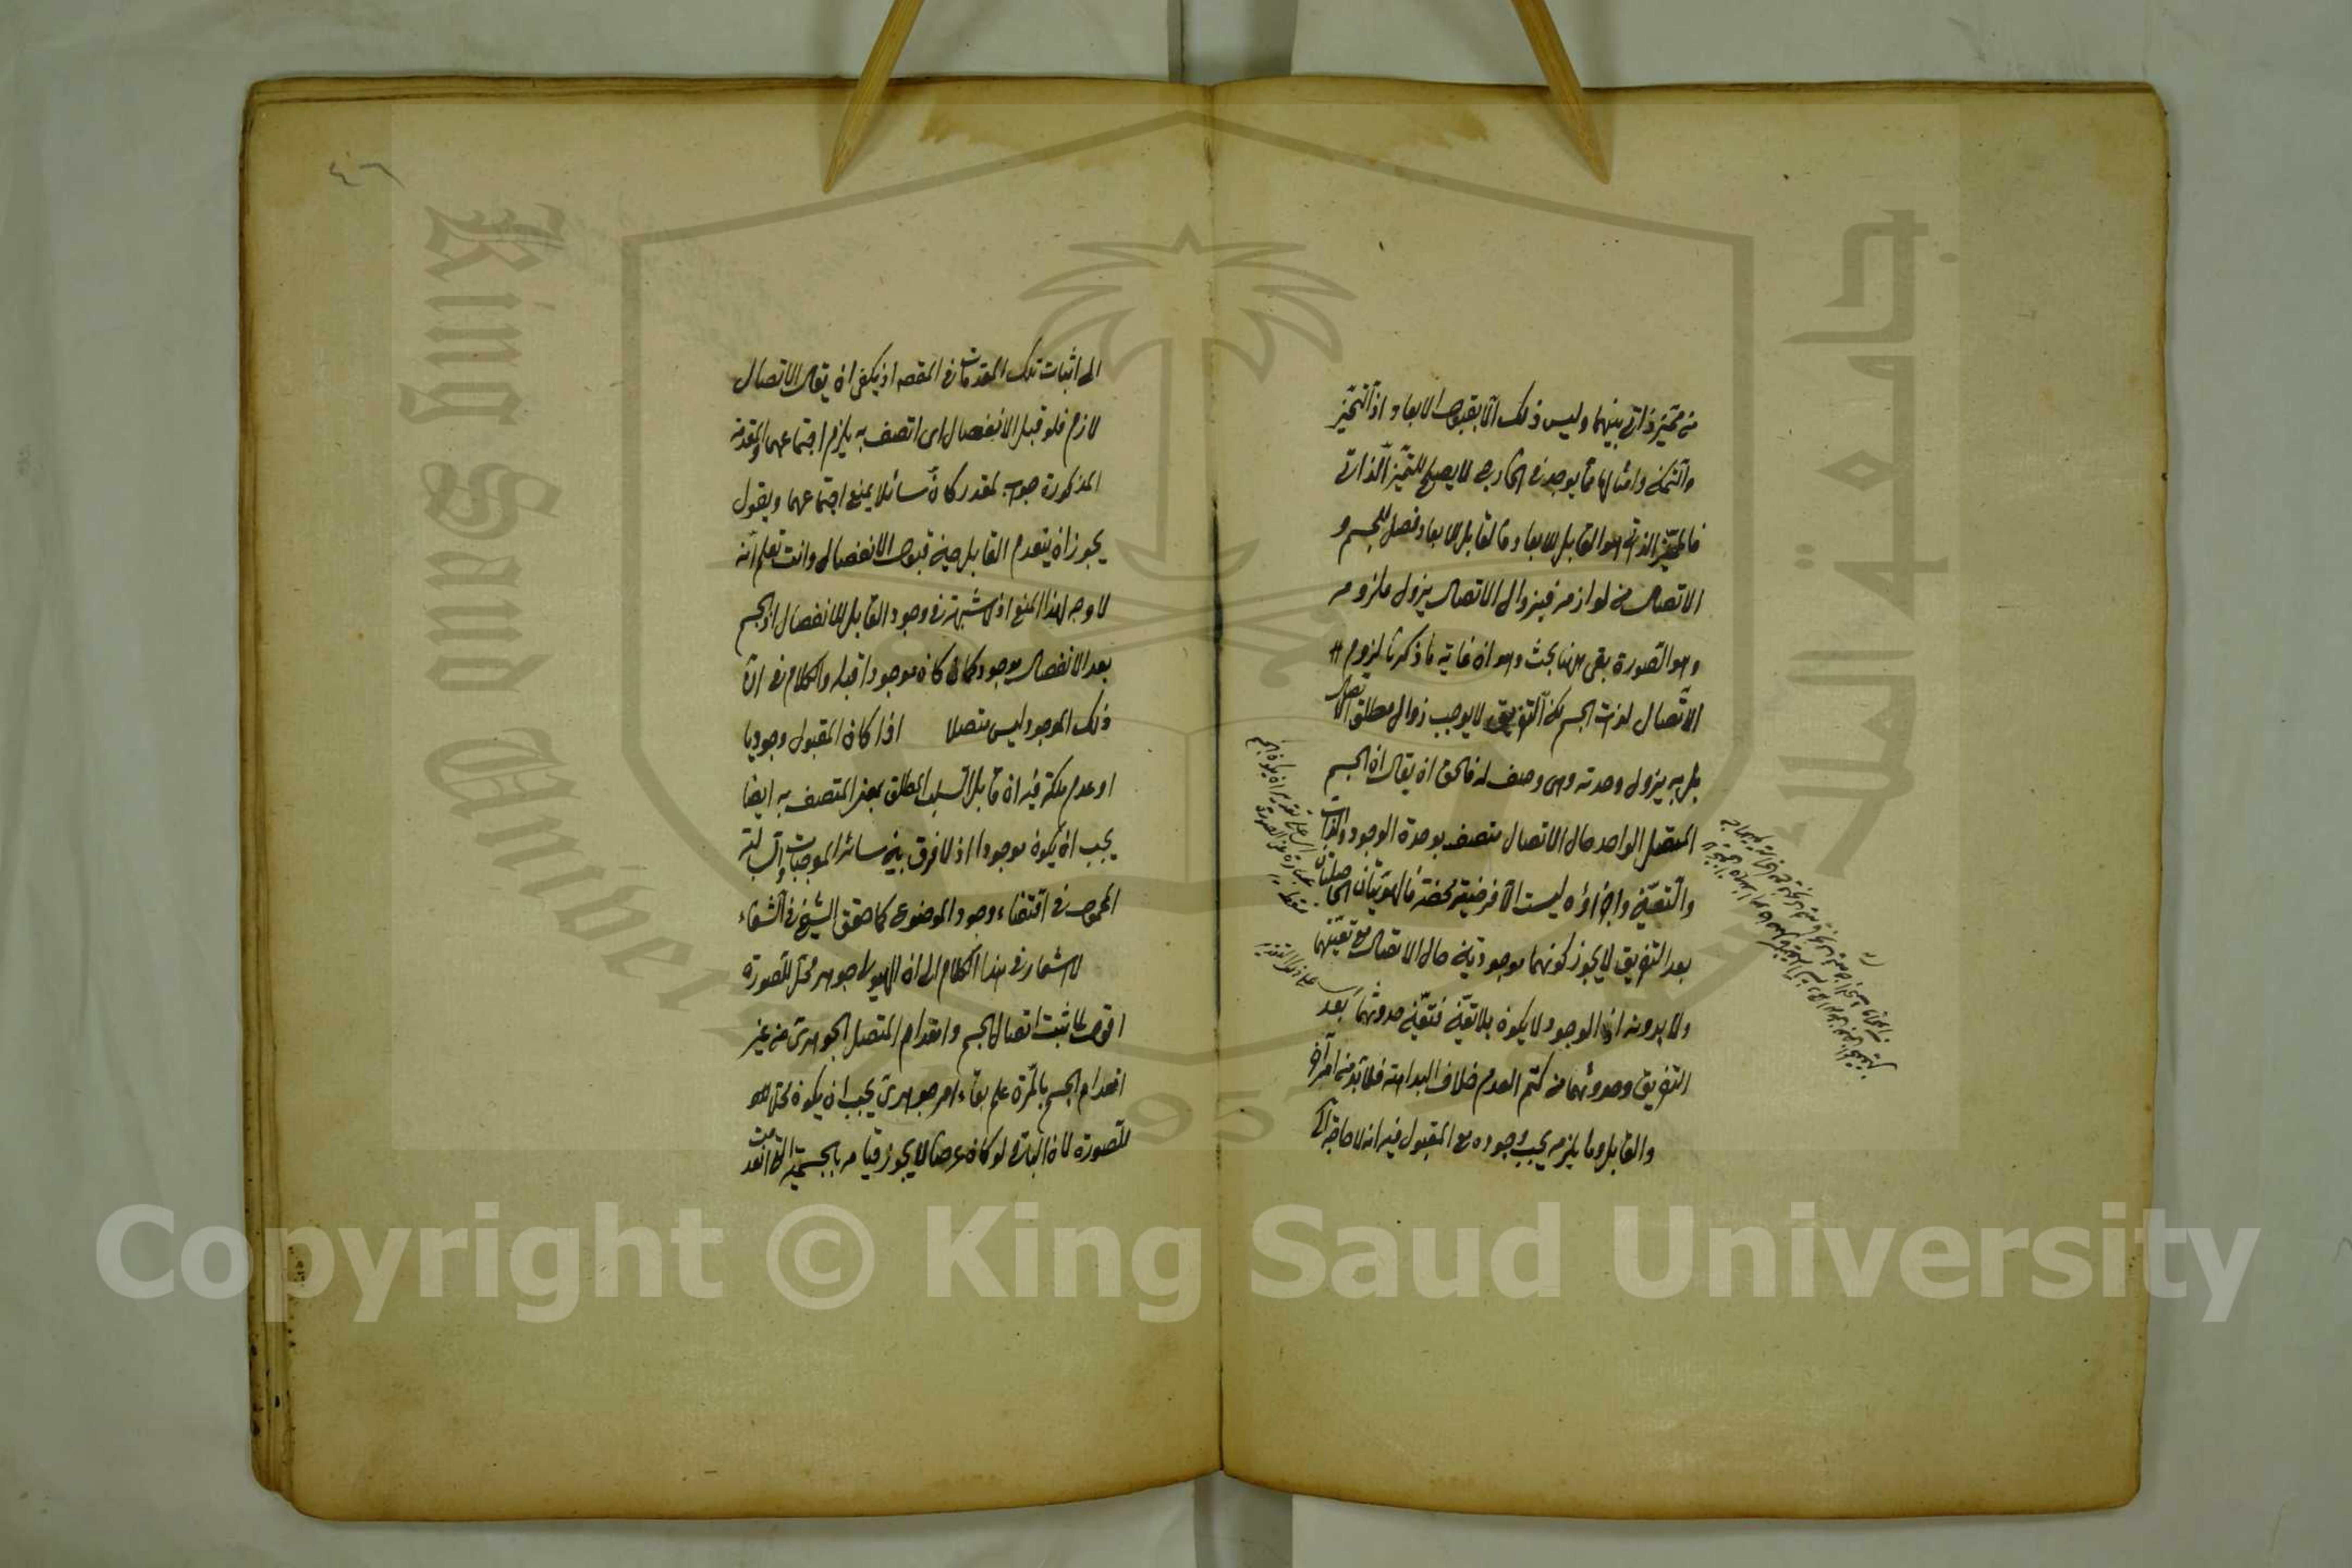 من تميّز ذاتي بينهما وليس ذلك الا بقبول الابعاد اذ التحيز
والتمكن وامثالها مما يوجد في الخارج لا يصلح للتميّز الذاتي
فالمميّز الذاتي هو القابل للابعاد فالقابل للابعاد فصل للجسم و
الاتصال من لوازمه فبزوال الاتصال يزول ملزومه
وهو الصورة بقي ههنا بحث وهو ان غاية ما ذكرنا لزوم
الاتصال لذات الجسم لكن التفريق لا يوجب زوال مطلق الاتصال
بل به يزول وحدته وهي وصف له فالحق ان يقال ان الجسم
المتصل الواحد حال الاتصال متصف بوحدة الوجود والذات
والتعيّن واجزاؤه ليست الا فرضية محضة فالهويتان الحاصلتان
بعد التفريق لا يجوز كونهما موجودتين حال الاتصال مع تعيّنهما
ولا بدونه اذ الوجود لا يكون بلا تعيّن فتعيّن حدوثهما بعد
التفريق وحدوثهما من كتم العدم خلاف البداهة فلا بد من امر آخر
والقابل وما يلزمه يجب وجوده مع المقبول فيه انه لا حاجة
الى اثبات تلك المقدمات في المقصد اذ يكفي ان يقال الاتصال
لازم فلو قبل الانفصال اى اتصف به يلزم اجتماعهما والمقدمة
المذكورة جواب لمقدر كان سائلا يمنع اجتماعهما ويقول
يجوز ان ينعدم القابل حين قبول الانفصال وانت تعلم انه
لا وجه لهذا المنع اذ لا شبهة في وجود القابل للانفصال اذ الجسم
بعد الانفصال موجود كما كان موجودا قبله والكلام في ان
ذلك الموجود ليس متصلا اذا كان المقبول وجوديا
او عدم ملكة فيه ان قابل السلب المطلق بمعنى المتصف به ايضا
يجب ان يكون موجودا اذ لا فرق بين سائر الموجبات والسالبة
المحمول في اقتضاء وجود الموضوع كما حقق الشيخ في الشفاء
لاشعار في هذا الكلام الى ان الهيولى جوهر محل للصورة
اقول لما ثبت اتصال الجسم وانعدام المتصل الجوهرى من غير
انعدام الجسم بالمرة علم بقاء امر جوهرى يجب ان يكون محلا
للصورة لان الباقي لو كان عرضا لا يجوز قيامه بالجسمية التي انعدمت
٤٦
King Saud University
جامعة الملك سعود
1957
Copyright © King Saud University